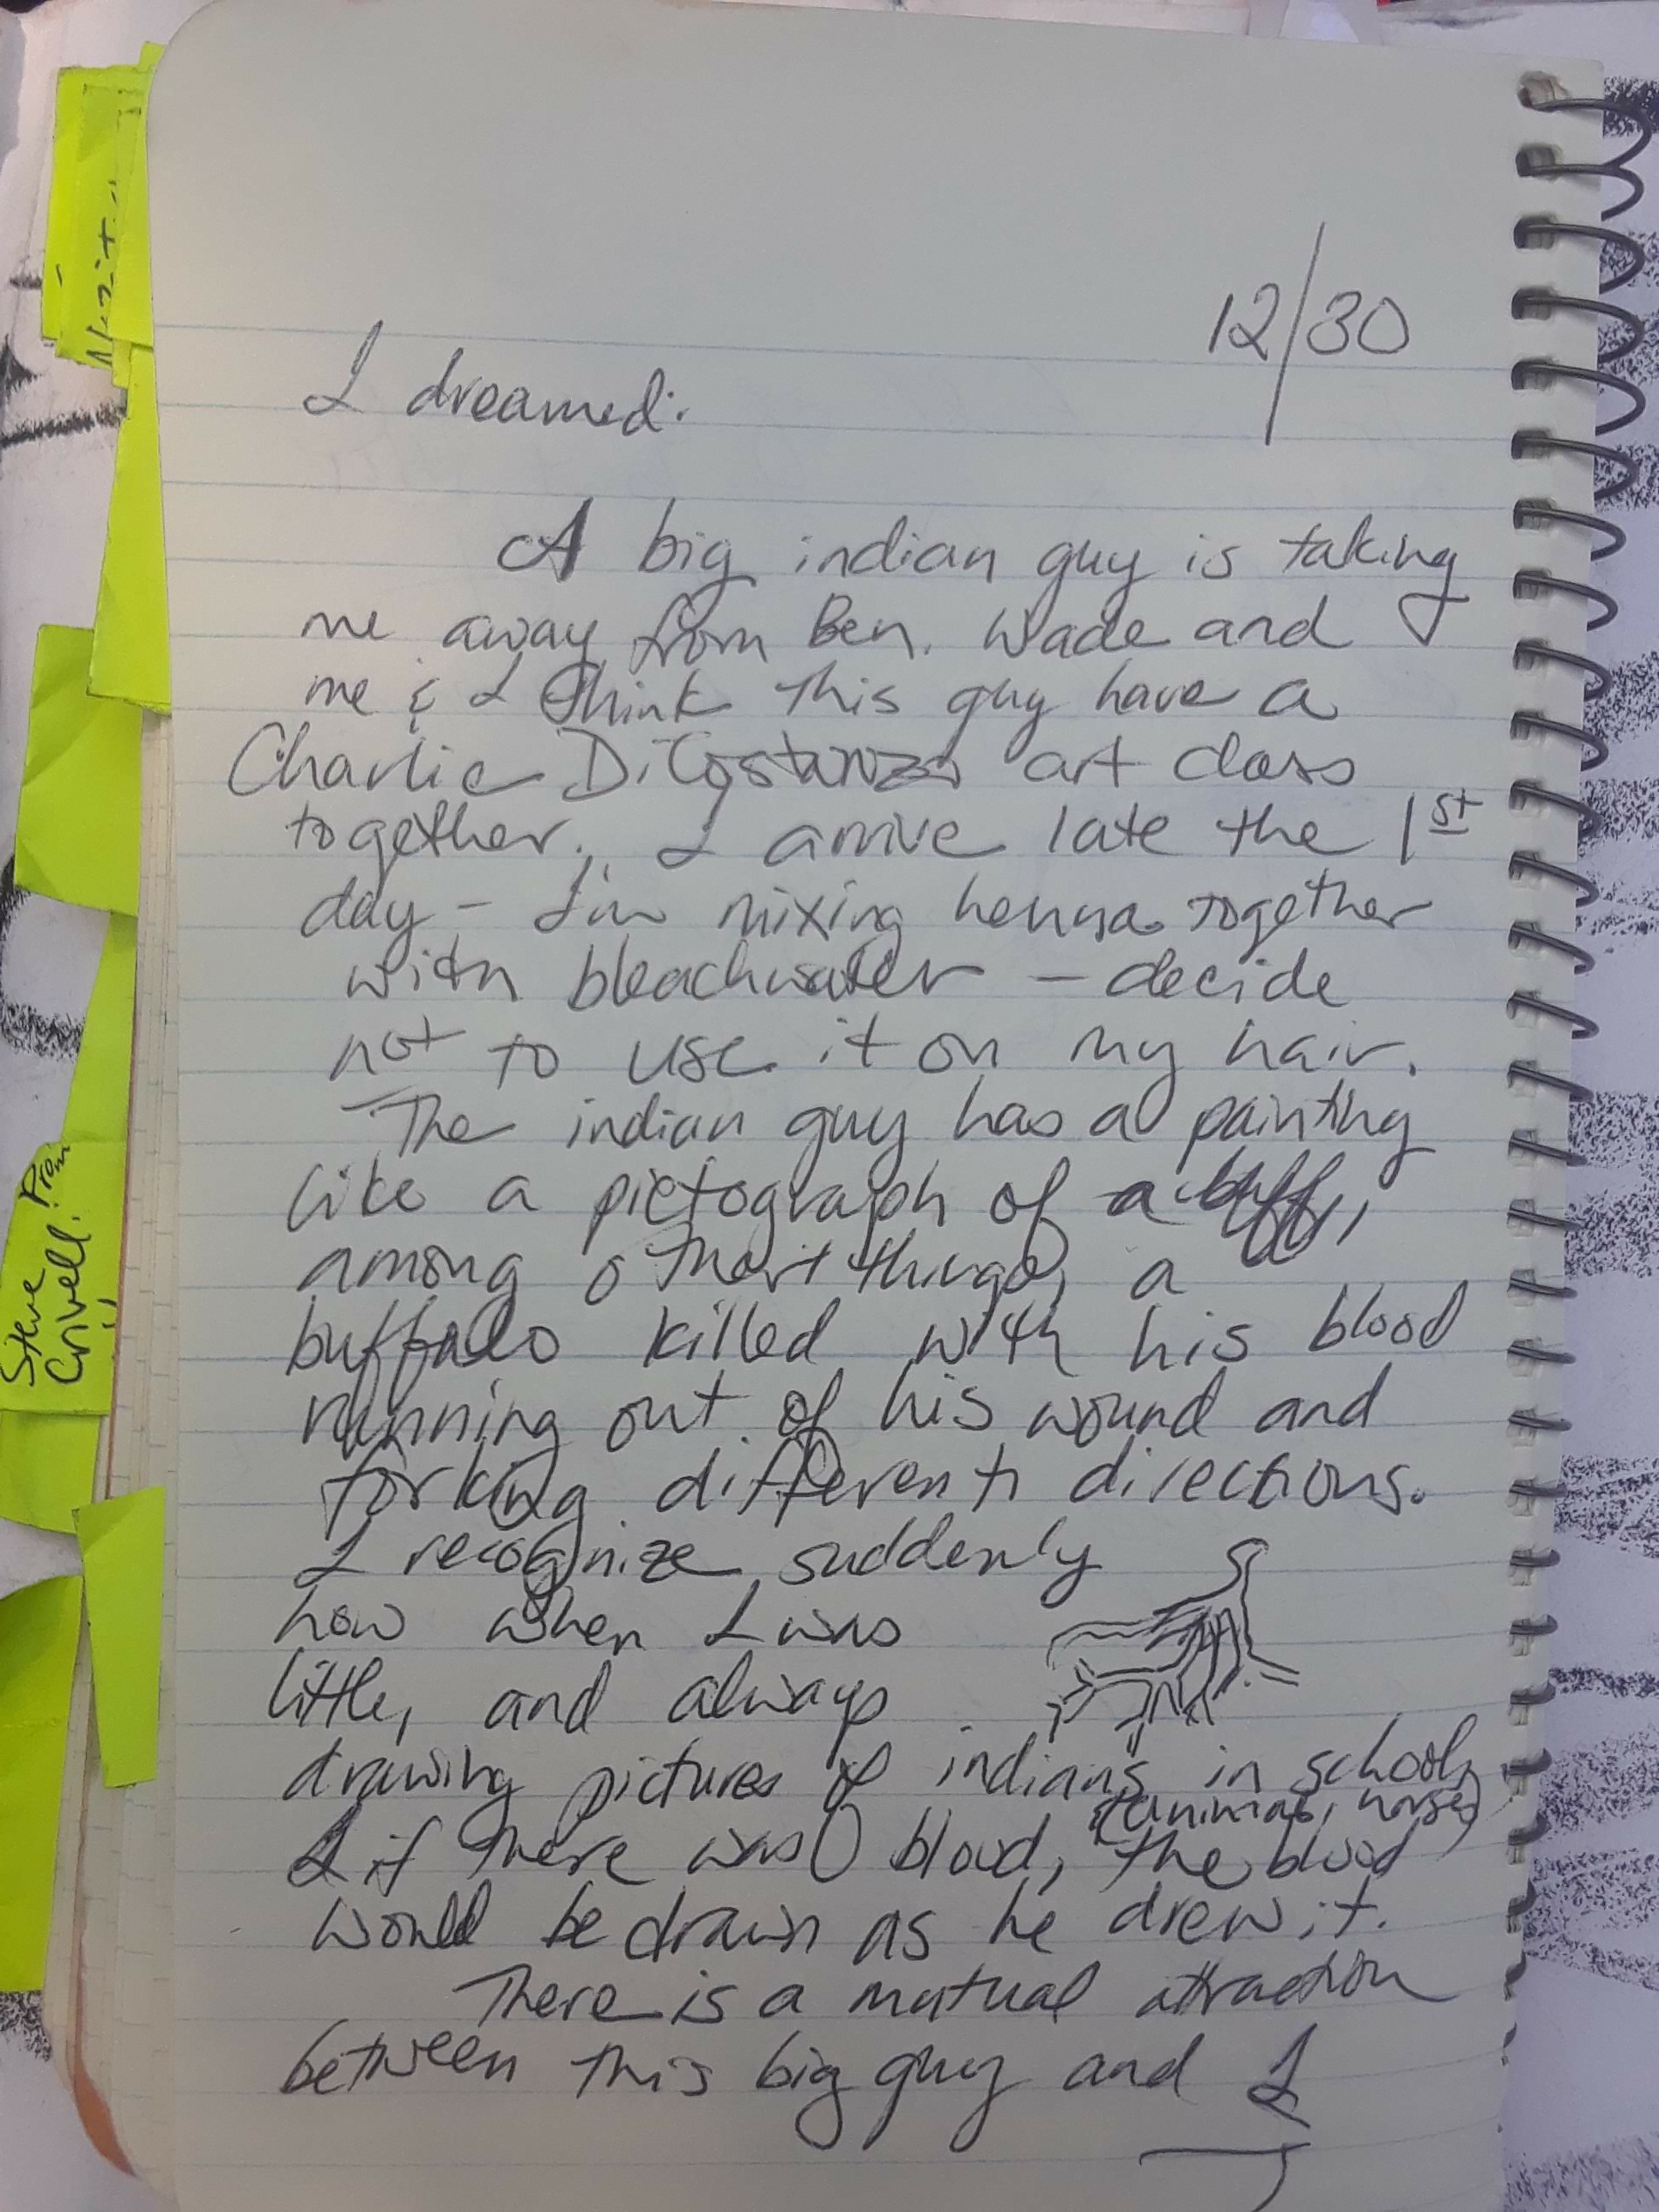 12/30
I dreamed:
A big indian guy is taking
me away from Ben. Wade and
me & I think this guy have a
Charlie DiCostanzo art class
together. I arrive late the 1st
day – I'm mixing henna together
with bleachwater – decide
not to use it on my hair.
The indian guy has a painting
like a pictograph of a buff,
among other things, a
buffalo killed with his blood
running out of his wound and
forking different directions.
I recognize suddenly
how when I was
little, and always
drawing pictures of indians in school,
(animals, horses)
& if there was blood, the blood
would be drawn as he drew it.
There is a mutual attraction
between this big guy and I
Steve
Crivell
From